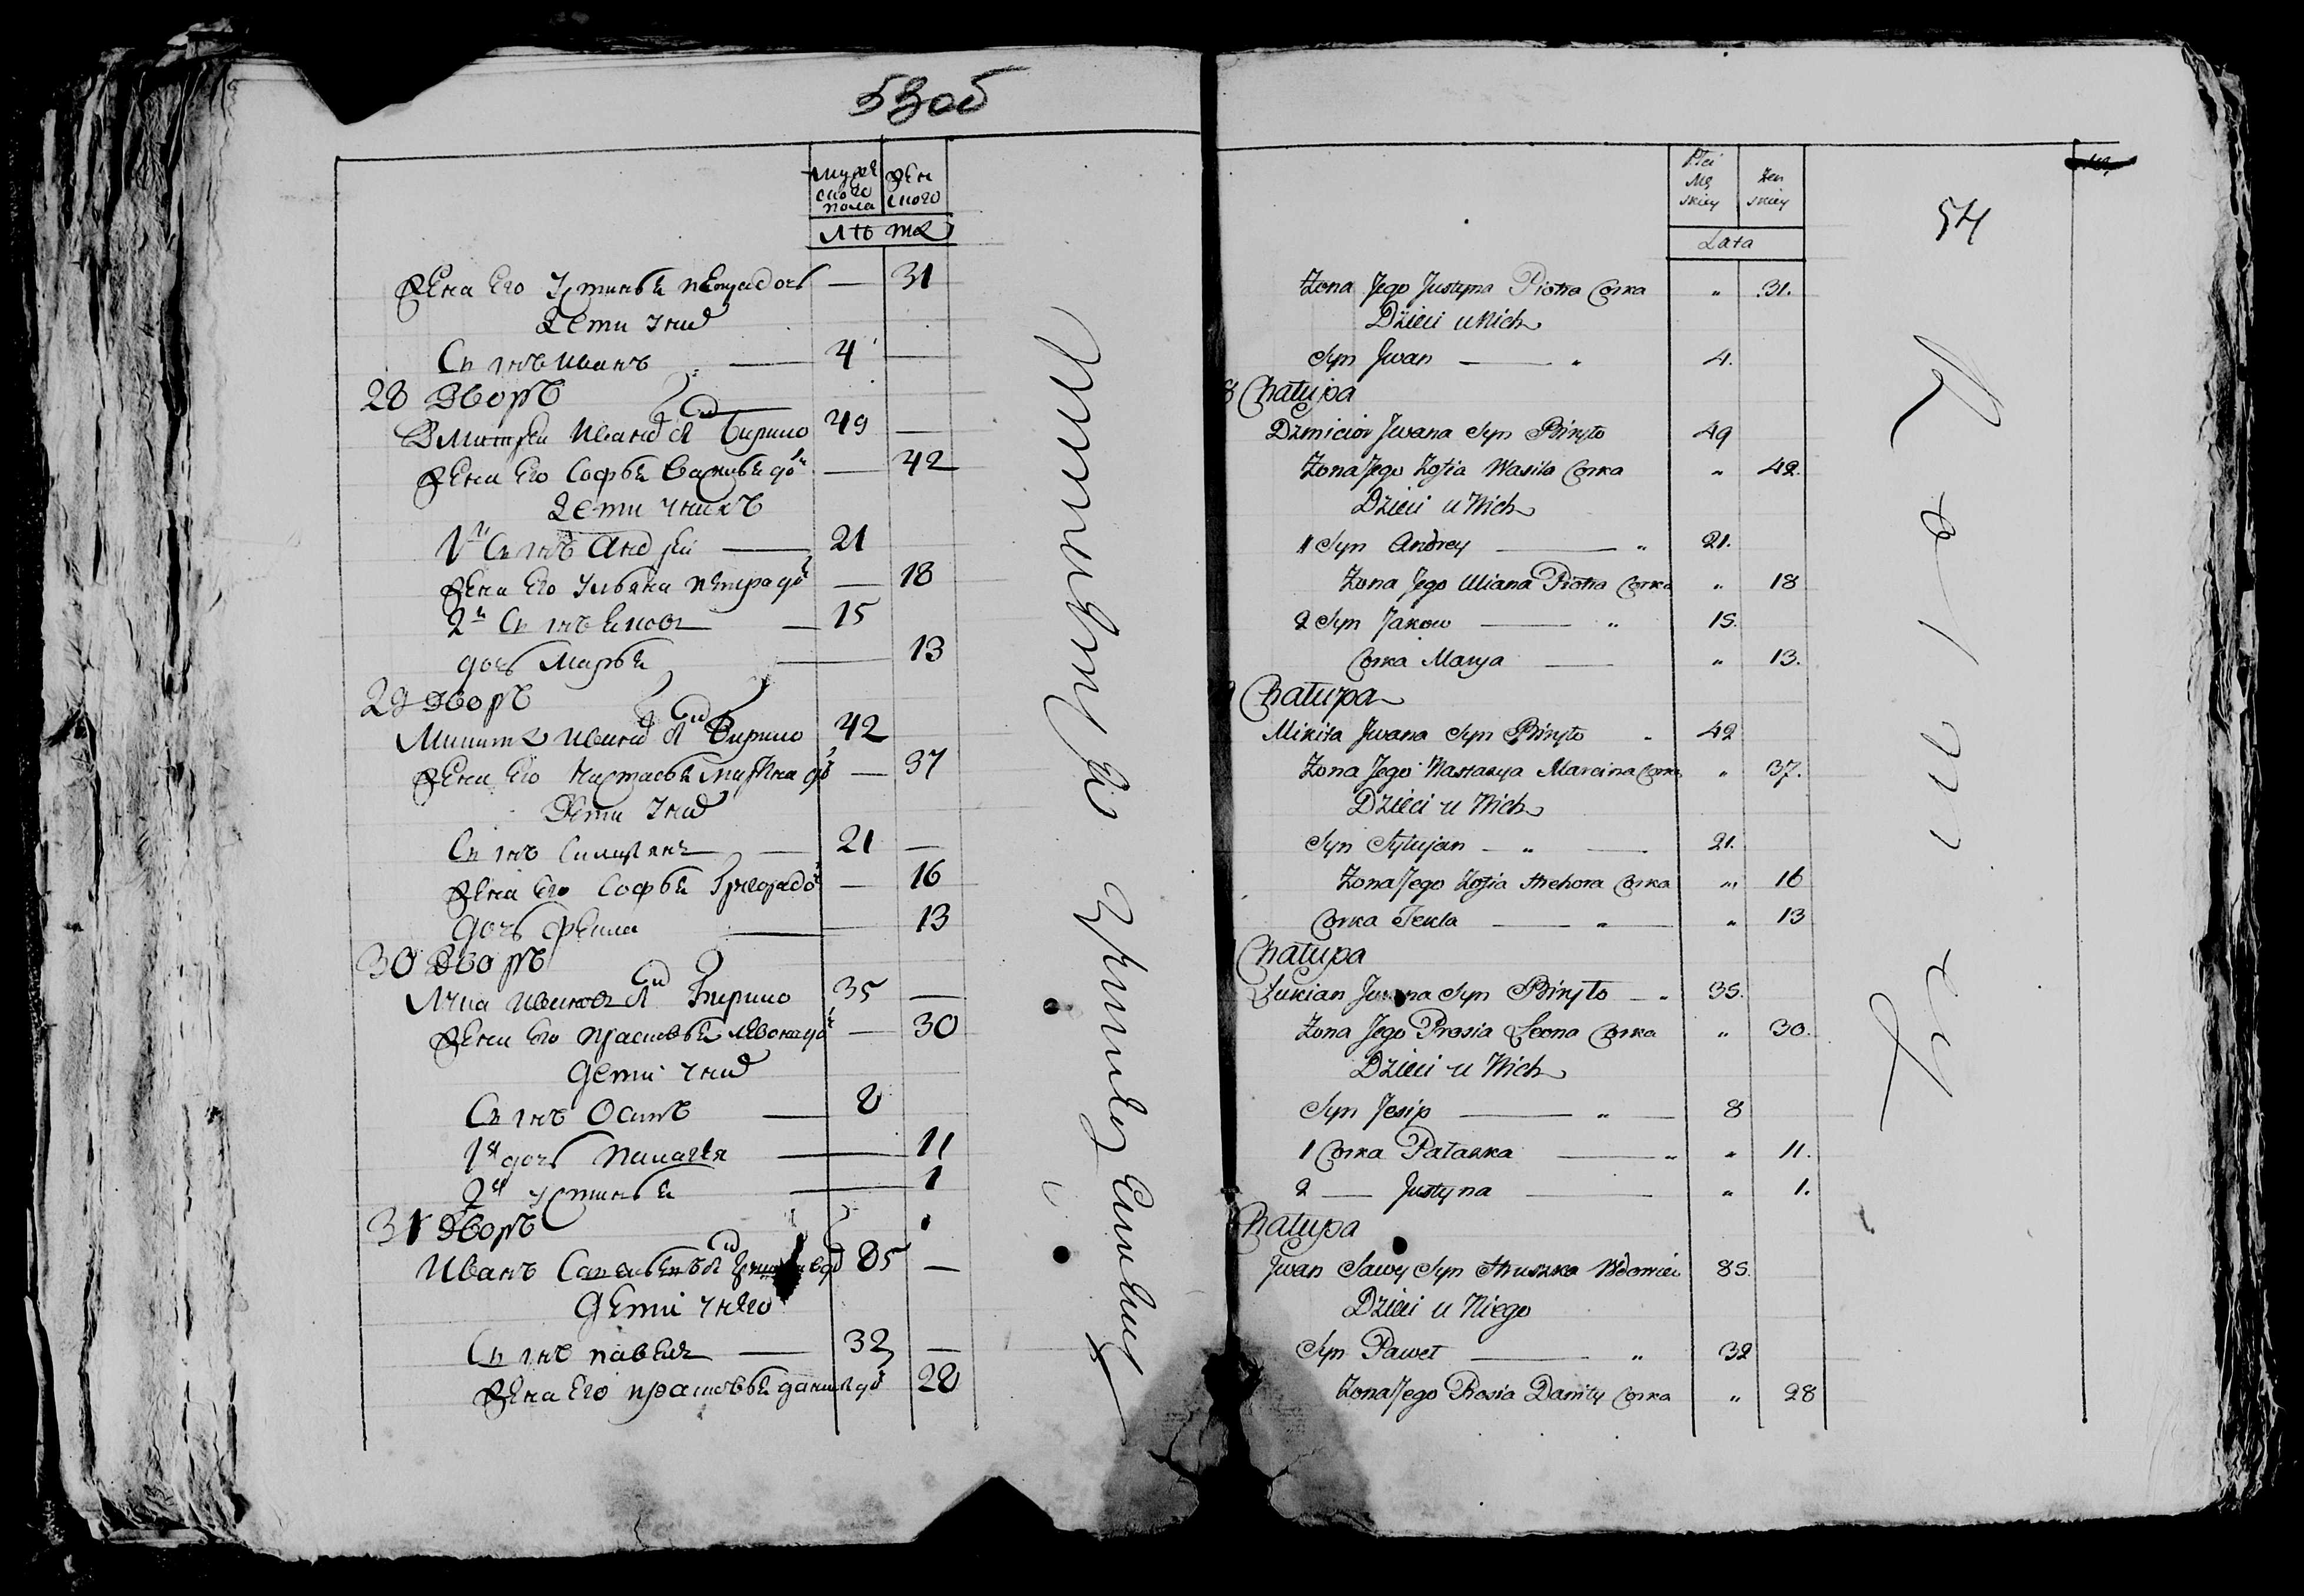 53об
мужескаго пола
женскаго
лѣта
жена его Устинья Петра дочь — 31
дети у них
сынъ Иванъ — 4 —
28 Дворъ
Дмитрей Иванов сн Бирило 49 —
жена его Софья Василья дочь — 42
дети у нихъ
1й сынъ Андрей — 21
жена его Ульяна Петра дочь — 18
2й сынъ Яков — 15
дочь Марья — 13
29 Дворъ
Микита Иванов сн Бирило 42
жена его Настасья Мартина дочь — 37
дети у них
сынъ Сильвян — 21 —
жена его Софья Григора дочь — 16
дочь Фекла — 13
30 Дворъ
Лука Иванов сн Бирило 35 —
жена его Прасковья Левона дочь — 30
дети у них
сынъ Осипъ — 8
1я дочь Палагея — 11
2я Устинья — 1
31 Дворъ
Иванъ Савельевъ сн вдов 85 —
дети у него
сынъ Павел — 32 —
жена его Прасковья Данила дочь 28
Płci Męskiey
Żenskiey
Lata
54
Żona Jego Justyna Piotra Corka „ 31.
Dzieci u Nich
Syn Jwan — „ 4.
8 Chałupa
Dzmicior Jwana Syn Biryło 49
Żona Jego Zofia Wasila Corka „ 42.
Dzieci u Nich
1 Syn Andrey — „ 21.
Żona Jego Uliana Piotra Corka „ 18
2 Syn Jakow — „ 15.
Corka Marya — „ 13.
Chałupa
Mikita Jwana Syn Biryło 42
Żona Jego Nastazya Marcina Corka „ 37.
Dzieci u Nich
Syn Sylwjan — „ — 21.
Żona Jego Zofia Hrehora Corka „ 16
Corka Tekla — „ — „ 13
Chałupa
Łukian Jwana Syn Biryło — „ 35.
Żona Jego Prosia Leona Corka „ 30.
Dzieci u Nich
Syn Josip — „ — 8
1 Corka Pałaska — „ „ 11.
2 — Justyna — „ 1.
Chałupa
Jwan Sawy Syn Hruszka Wdowiec 85.
Dzieci u Niego
Syn Paweł — „ 32
Żona Jego Prosia Daniły Corka „ 28